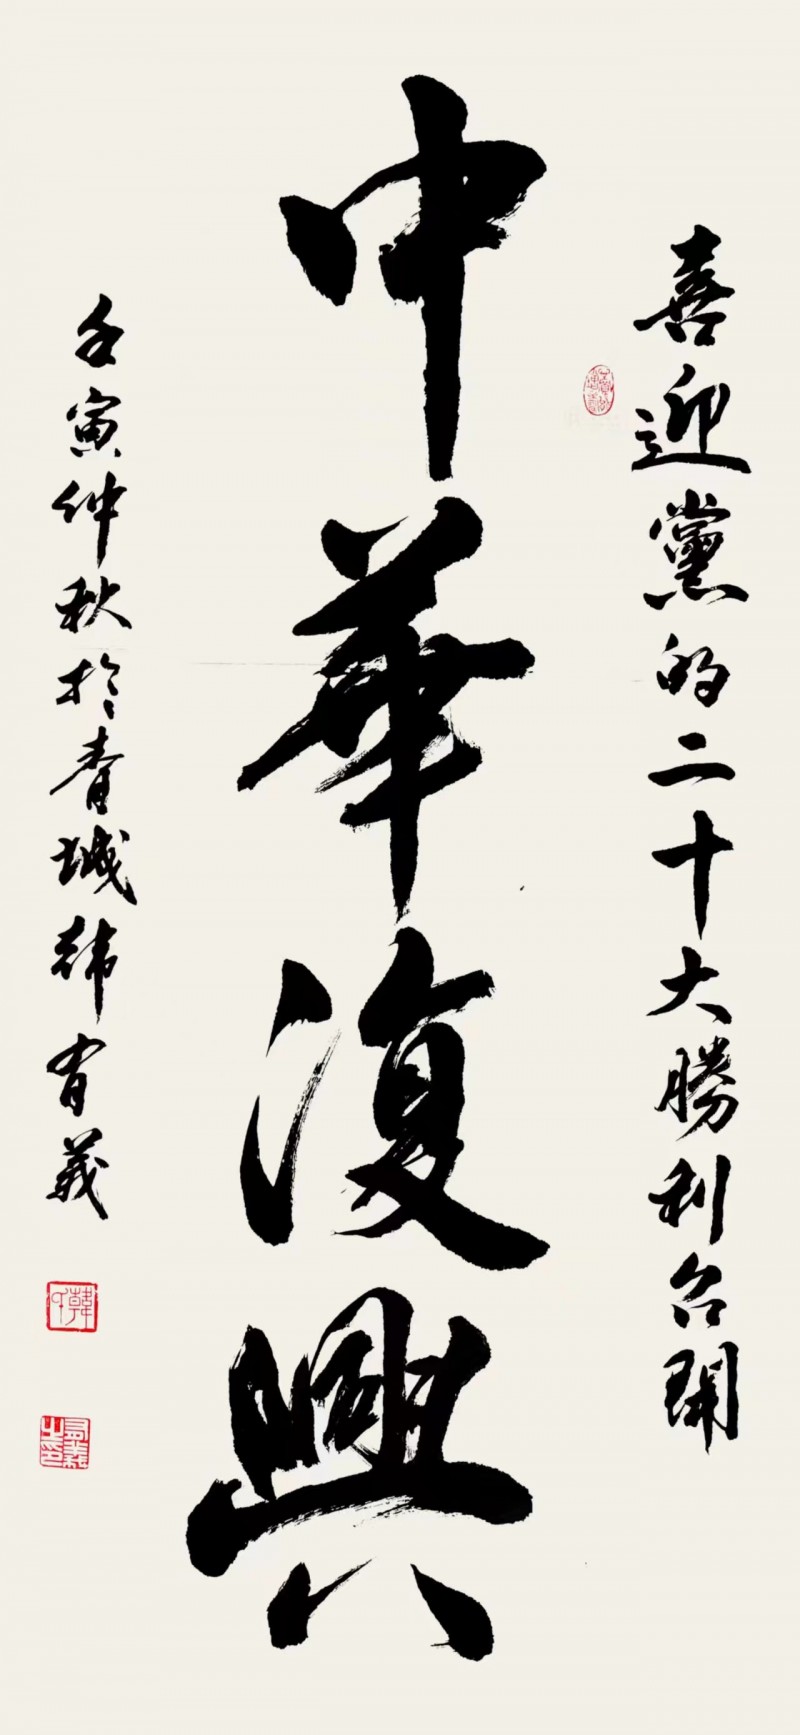 喜迎黨的二十大勝利召開
中華復興
壬寅仲秋於青城韓有義
韓
有義之印